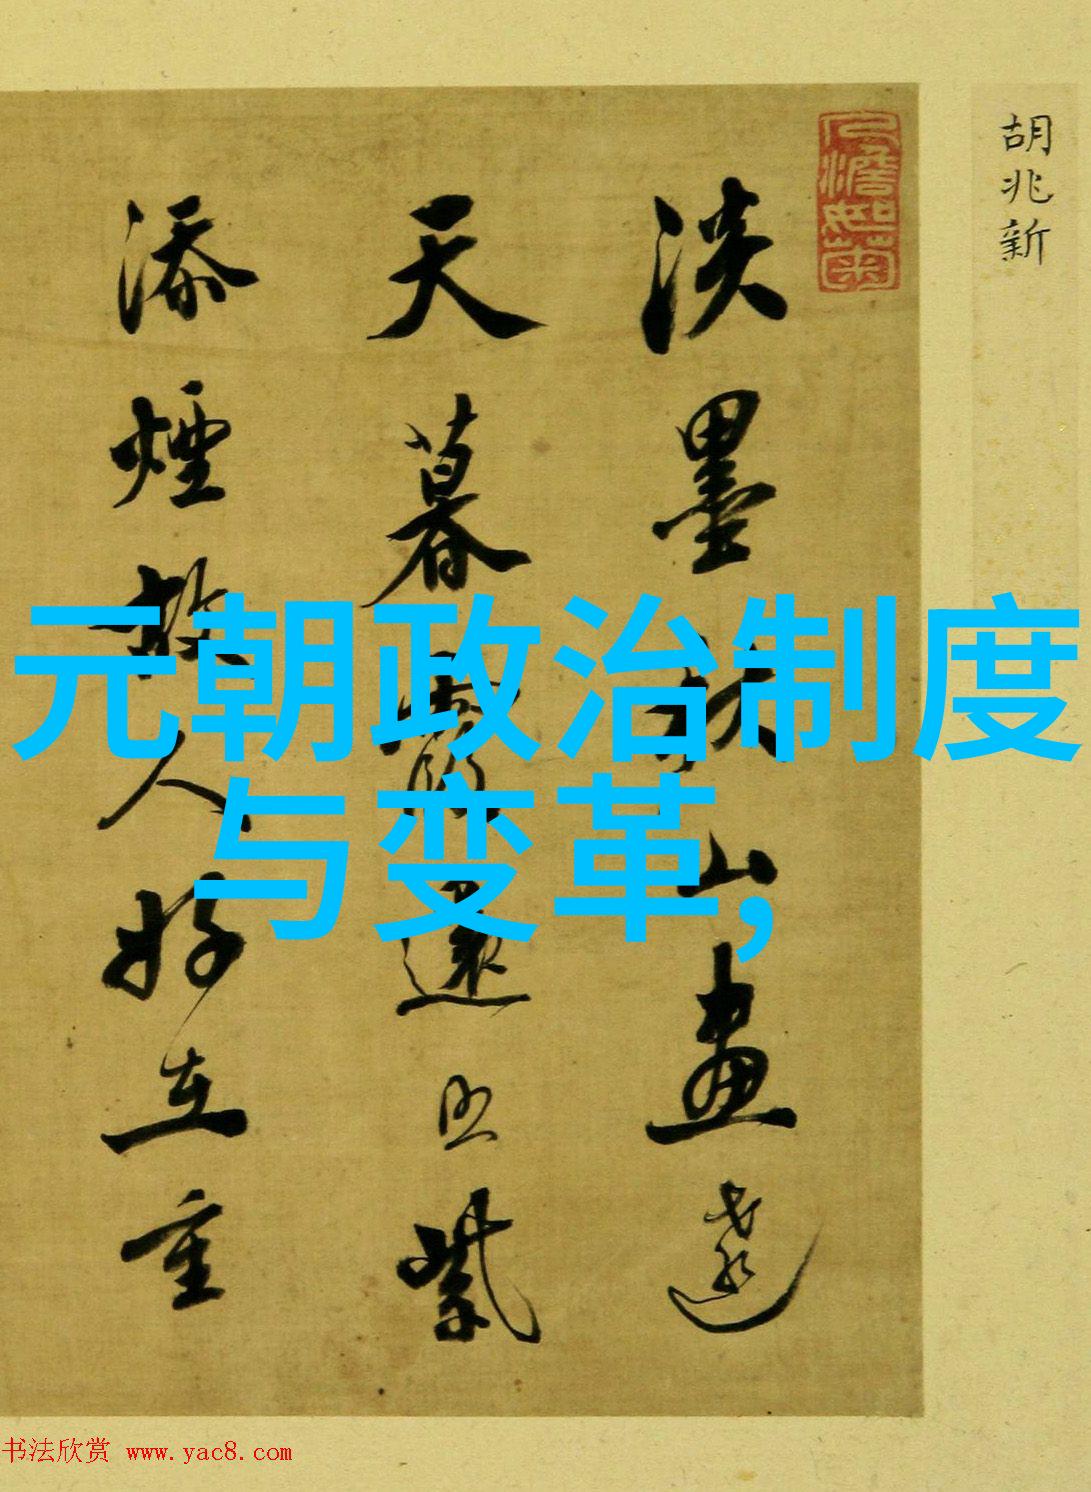 胡兆新
淡墨秋山畫遠
天暮霞還照紫
添煙故人好在重
元朝政治制度
与变革,
书法欣赏 www.yac8.com